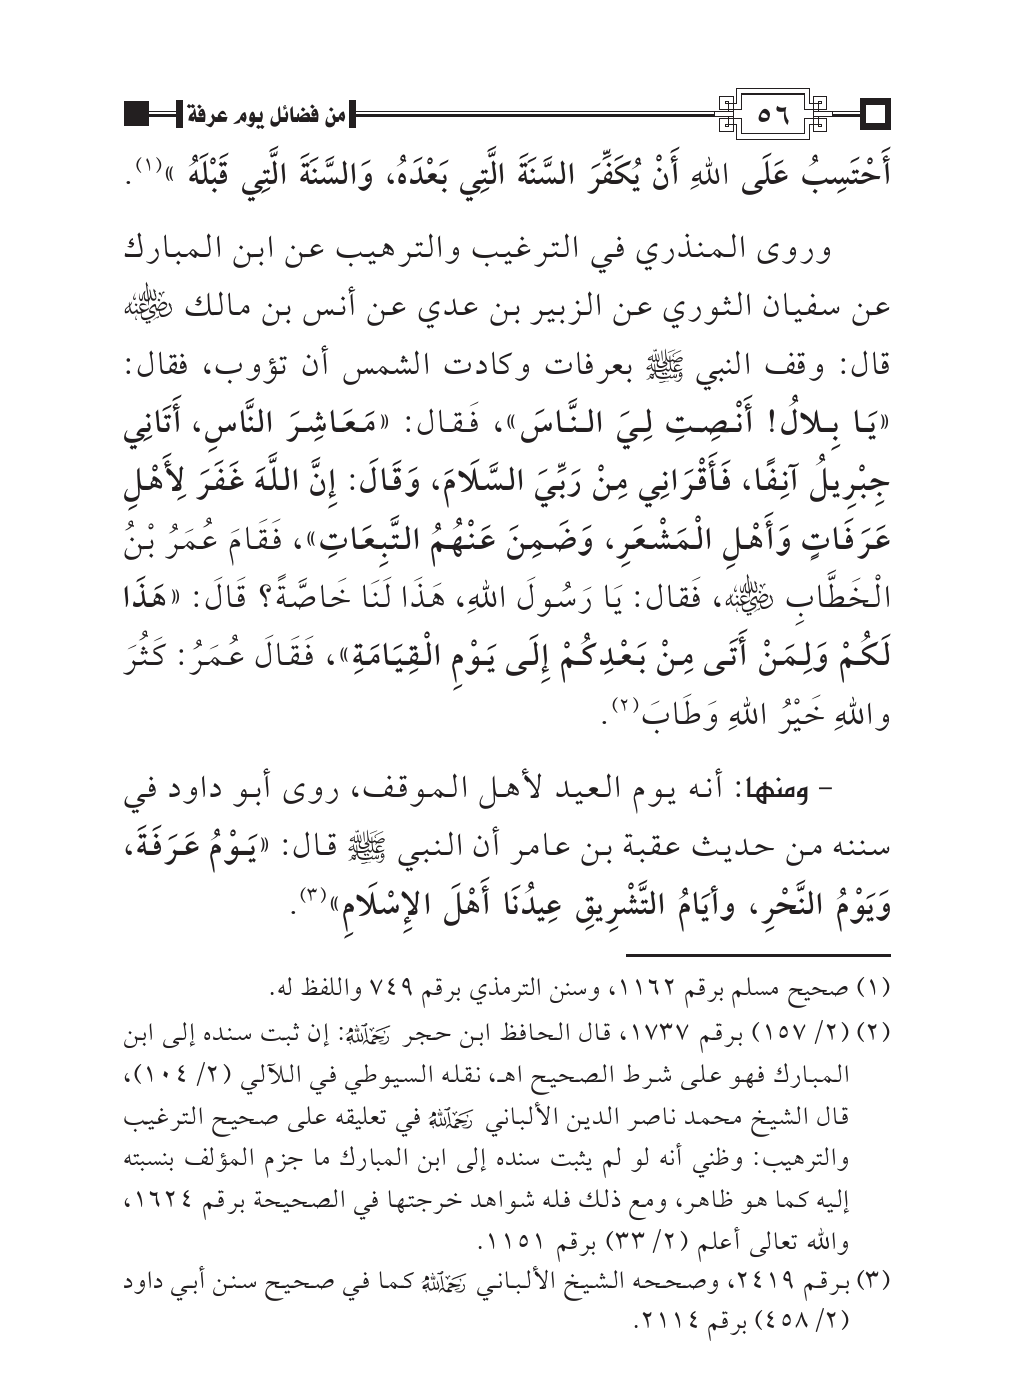 ٥٦
من فضائل يوم عرفة
أَحْتَسِبُ عَلَى اللهِ أَنْ يُكَفِّرَ السَّنَةَ الَّتِي بَعْدَهُ، وَالسَّنَةَ الَّتِي قَبْلَهُ »(١).
وروى المنذري في الترغيب والترهيب عن ابن المبارك
عن سفيان الثوري عن الزبير بن عدي عن أنس بن مالك رضي الله عنه
قال: وقف النبي ﷺ بعرفات وكادت الشمس أن تؤوب، فقال:
«يَا بِلالُ! أَنْصِتِ لِيَ النَّاسَ»، فَقال: «مَعَاشِرَ النَّاسِ، أَتَانِي
جِبْرِيلُ آنِفًا، فَأَقْرَانِي مِنْ رَبِّيَ السَّلَامَ، وَقَالَ: إِنَّ اللَّهَ غَفَرَ لِأَهْلِ
عَرَفَاتٍ وَأَهْلِ الْمَشْعَرِ، وَضَمِنَ عَنْهُمُ التَّبِعَاتِ»، فَقَامَ عُمَرُ بْنُ
الْخَطَّابِ رضي الله عنه، فَقال: يَا رَسُولَ اللهِ، هَذَا لَنَا خَاصَّةً؟ قَالَ: «هَذَا
لَكُمْ وَلِمَنْ أَتَى مِنْ بَعْدِكُمْ إِلَى يَوْمِ الْقِيَامَةِ»، فَقَالَ عُمَرُ: كَثُرَ
واللهِ خَيْرُ اللهِ وَطَابَ(٢).
– ومنها: أنه يوم العيد لأهل الموقف، روى أبو داود في
سننه من حديث عقبة بن عامر أن النبي ﷺ قال: «يَوْمُ عَرَفَةَ،
وَيَوْمُ النَّحْرِ، وأيَامُ التَّشْرِيقِ عِيدُنَا أَهْلَ الإِسْلَامِ»(٣).
(١) صحيح مسلم برقم ١١٦٢، وسنن الترمذي برقم ٧٤٩ واللفظ له.
(٢) (٢/ ١٥٧) برقم ١٧٣٧، قال الحافظ ابن حجر رحمه الله: إن ثبت سنده إلى ابن
المبارك فهو على شرط الصحيح اهـ، نقله السيوطي في اللآلي (٢/ ١٠٤)،
قال الشيخ محمد ناصر الدين الألباني رحمه الله في تعليقه على صحيح الترغيب
والترهيب: وظني أنه لو لم يثبت سنده إلى ابن المبارك ما جزم المؤلف بنسبته
إليه كما هو ظاهر، ومع ذلك فله شواهد خرجتها في الصحيحة برقم ١٦٢٤،
والله تعالى أعلم (٢/ ٣٣) برقم ١١٥١.
(٣) برقم ٢٤١٩، وصححه الشيخ الألباني رحمه الله كما في صحيح سنن أبي داود
(٢/ ٤٥٨) برقم ٢١١٤.